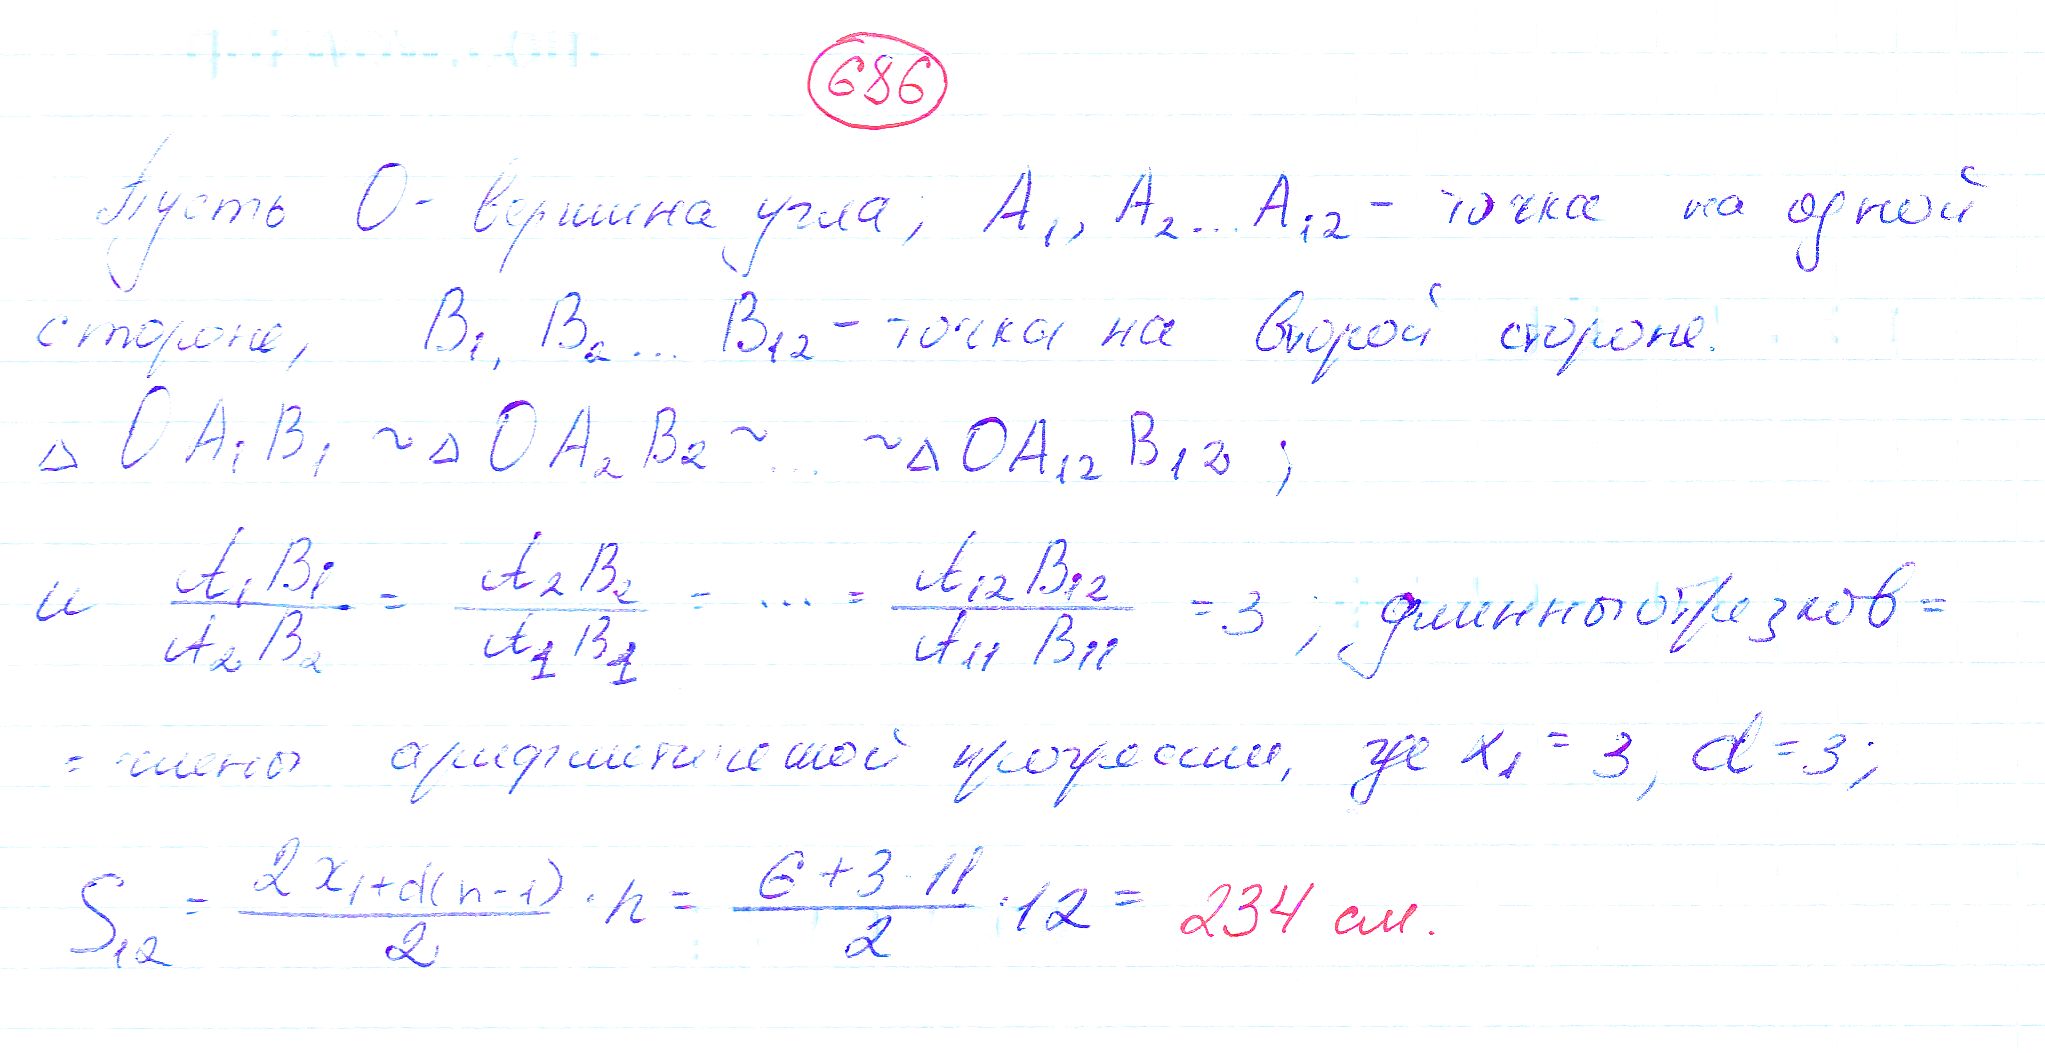 686
Пусть O - вершина угла, A₁, A₂...A₁₂ - точка на одной
стороне, B₁, B₂... B₁₂ - точка на второй стороне.
△ OA₁B₁ ~ △ OA₂B₂ ~ ... ~ △ OA₁₂B₁₂ ;
и A₁B₁/A₂B₂ = A₂B₂/A₁B₁ = ... = A₁₂B₁₂/A₁₁B₁₁ = 3 ; длинны отрезков =
= члены арифметической прогрессии, где x₁ = 3, d = 3;
S₁₂ = (2x₁+d(n-1))/2 · n = (6+3·11)/2 · 12 = 234 см.